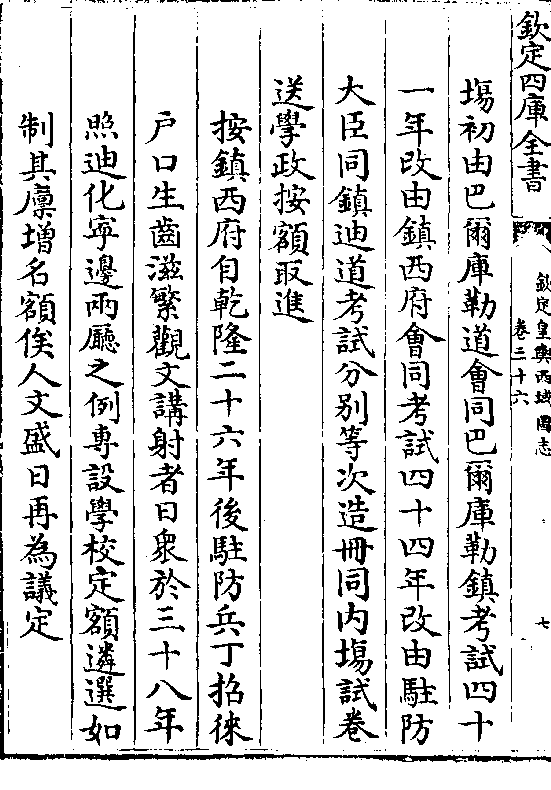 欽定四庫全書
欽定皇輿西域圖志
卷三十六
七
塲初由巴爾庫勒道會同巴爾庫勒鎮考試四十
一年改由鎮西府會同考試四十四年改由駐防
大臣同鎮迪道考試分别等次造冊同内塲試卷
送學政按額取進
按鎮西府自乾隆二十六年後駐防兵丁招徠
戶口生齒滋繁觀文講射者日衆於三十八年
照迪化寧邊兩廳之例専設學校定額遴選如
制其廪増名額俟人文盛日再為議定